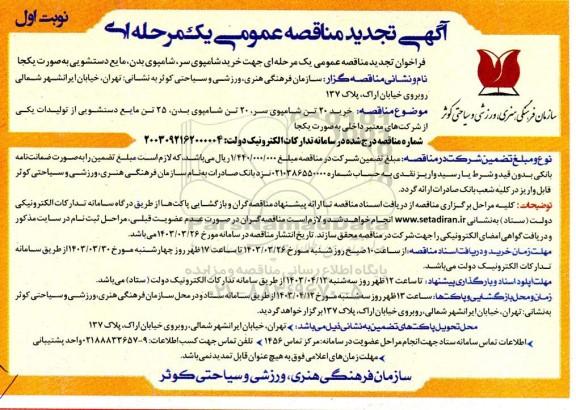 نوبت اول
آگهی تجدید مناقصه عمومی یک مرحله ای
سازمان فرهنگی، هنری، ورزشی و سیاحتی کوثر
فراخوان تجدید مناقصه عمومی یک مرحله ای جهت خرید شامپوی سر، شامپوی بدن، مایع دستشویی به صورت یکجا
نام و نشانی مناقصه گزار: سازمان فرهنگی هنری، ورزشی و سیاحتی کوثر به نشانی: تهران، خیابان ایرانشهر شمالی
روبروی خیابان اراک، پلاک ۱۳۷
موضوع مناقصه: خرید ۲۰ تن شامپوی سر، ۲۰ تن شامپوی بدن، ۲۵ تن مایع دستشویی از تولیدات یکی
از شرکت های معتبر داخلی به صورت یکجا
شماره مناقصه درج شده در سامانه تدارکات الکترونیک دولت: ۲۰۰۳۰۹۲۱۶۲۰۰۰۰۰۴
نوع و مبلغ تضمین شرکت در مناقصه: مبلغ تضمین شرکت در مناقصه مبلغ ۱/۴۴۰/۰۰۰/۰۰۰ ریال می باشد، که لازم است مبلغ تضمین را به صورت ضمانت نامه
بانکی بدون قید و شرط یا رسید واریز نقدی به حساب شماره ۰۲۱۰۳۸۶۵۵۰۰۰۰ نزد بانک صادرات به نام سازمان فرهنگی هنری، ورزشی و سیاحتی کوثر
قابل واریز در کلیه شعب بانک صادرات ارائه گردد.
توضیحات: کلیه مراحل برگزاری مناقصه از دریافت اسناد مناقصه تا ارائه پیشنهاد مناقصه گران و بازگشایی پاکت ها از طریق درگاه سامانه تدارکات الکترونیکی
دولت (ستاد) به نشانی www.setadiran.ir انجام خواهد شد و لازم است مناقصه گران در صورت عدم عضویت قبلی، مراحل ثبت نام در سایت مذکور
و دریافت گواهی امضای الکترونیکی را جهت شرکت در مناقصه محقق سازند. تاریخ انتشار مناقصه در سامانه مورخ ۱۴۰۳/۰۳/۲۶ می باشد.
مهلت زمان خرید و دریافت اسناد مناقصه: از ساعت ۱۰ صبح روز شنبه مورخ ۱۴۰۳/۰۳/۲۶ تا ساعت ۱۷ ظهر روز چهارشنبه مورخ ۱۴۰۳/۰۳/۳۰ از طریق سامانه
تدارکات الکترونیک دولت می باشد.
مهلت آپلود اسناد و بارگذاری پیشنهاد: تا ساعت ۱۲ ظهر روز سه شنبه ۱۴۰۳/۰۴/۱۲ از طریق سامانه تدارکات الکترونیک دولت (ستاد) می باشد.
زمان و محل بازگشایی و پاکت ها: ساعت ۱۳ ظهر روز سه شنبه مورخ ۱۴۰۳/۰۴/۱۲ از طریق سامانه ستاد و در محل سازمان فرهنگی هنری، ورزشی و سیاحتی کوثر
به نشانی: تهران، خیابان ایرانشهر شمالی، روبروی خیابان اراک، پلاک ۱۳۷ برگزار خواهد گردید.
محل تحویل پاکت های تضمین به نشانی ذیل می باشد: تهران، خیابان ایرانشهر شمالی، روبروی خیابان اراک، پلاک ۱۳۷
اطلاعات تماس سامانه ستاد جهت انجام مراحل عضویت در سامانه: مرکز تماس ۱۴۵۶ تلفن تماس جهت کسب اطلاعات: ۹-۲۱۸۸۸۳۲۶۵۷ - واحد پشتیبانی
مهلت زمان های اعلامی فوق به هیچ عنوان قابل تمدید نمی باشد.
سازمان فرهنگی هنری، ورزشی و سیاحتی کوثر